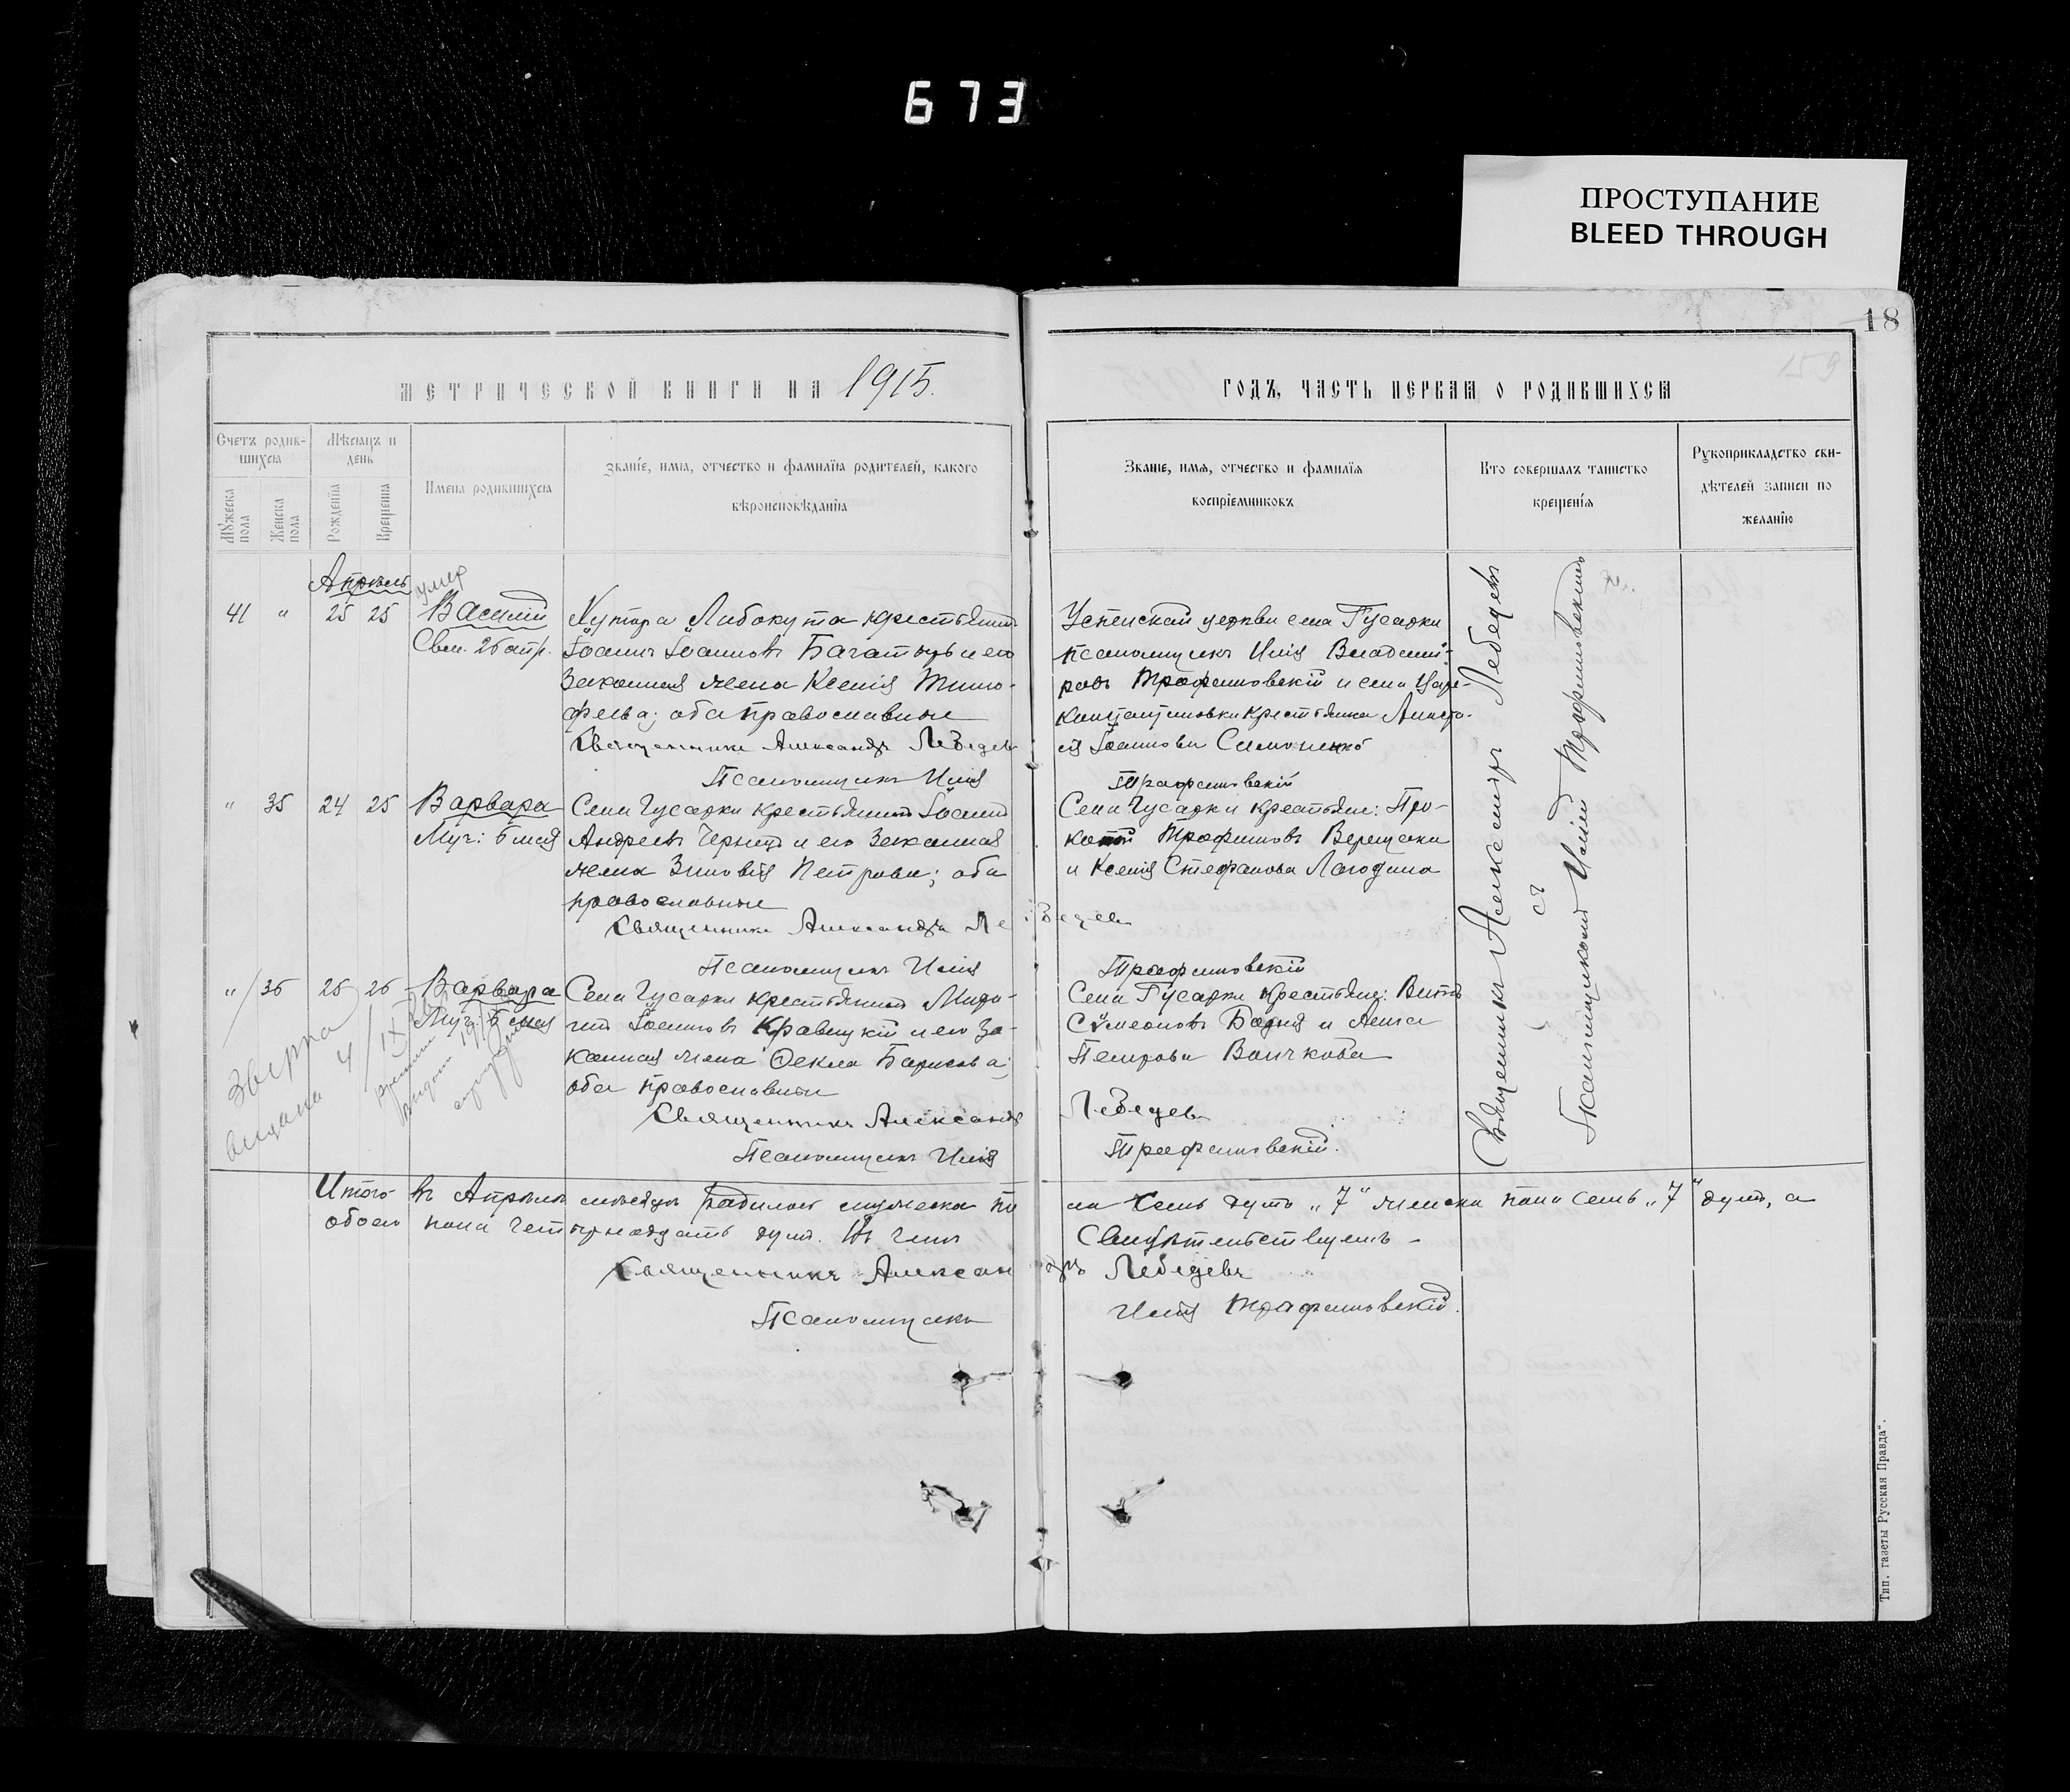 673
ПРОСТУПАНИЕ
BLEED THROUGH
18
МЕТРИЧЕСКОЙ КНИГИ НА 1915.
ГОДЪ, ЧАСТЬ ПЕРВАЯ О РОДИВШИХСЯ
Счетъ родив-
шихся
Мѣсяцъ и
день
Мужеска
пола
Женска
пола
Рожденія
Крещенія
Имена родившихся
Званіе, имя, отчество и фамилія родителей, какого
вѣроисповѣданія
Званіе, имя, отчество и фамилія
воспріемниковъ
Кто совершалъ таинство
крещенія
Рукоприкладство сви-
дѣтелей записи по
желанію
Апрѣль
умер
41 " 25 25 Василій
Свм. 26 апр.
Хутора крестьянинъ
Іоаннъ Іоанновъ и его
законная жена Ксенія Тимо-
феева; оба православные
Священникъ Александръ Лебедевъ
Псаломщикъ Илія Трофимовскій
Успенской церкви села Гусарки
псаломщикъ Илія Владимі-
ровъ Трофимовскій и села Царе-
константиновки крестьянка Анаста-
сія Іоаннова Симоненко
" 35 24 25 Варвара
Муч: 5 мая
Села Гусарки крестьянинъ Іоаннъ
Андреевъ и его законная
жена Зиновія Петрова; оба
православные
Священникъ Александръ Лебедевъ
Псаломщикъ Илія Трофимовскій
Села Гусарки крестьяне: Про-
копій Трофимовъ Верещака
и Ксенія Стефанова Логодина
" 36 26 26 Варвара
Муч: 5 мая
Села Гусарки крестьянинъ
Іоанновъ Кравецкій и его за-
конная жена Ѳекла Борисова;
оба православные
Священникъ Александръ Лебедевъ
Псаломщикъ Илія Трофимовскій.
Села Гусарки крестьяне:
Сѵмеоновъ Бодня и Анна
Петрова Волчкова
Священникъ Александръ Лебедевъ
съ
Псаломщикомъ Иліей Трофимовскимъ
Итого въ Апрѣлѣ мѣсяцѣ родилось мужеска пола семь душъ „7" женска пола семь „7" душъ, а
обоего пола четырнадцать душъ. Въ чемъ свидѣтельствуемъ
Священникъ Александръ Лебедевъ
Псаломщикъ Илія Трофимовскій.
Тип. газеты Русская Правда".